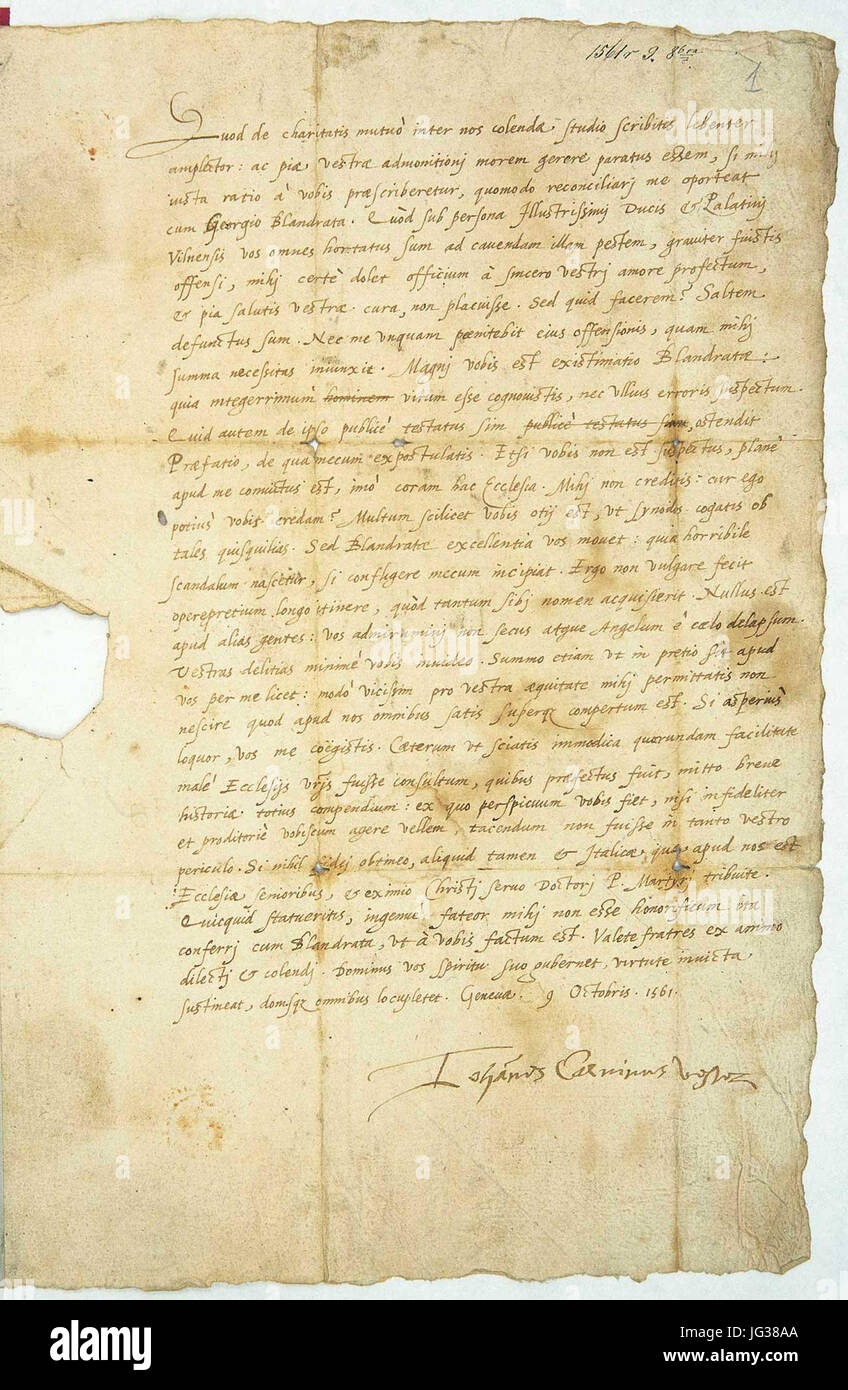 1561 9. 8bra
1
Quod de charitatis mutuò inter nos colendæ studio scribitis libenter
amplector: ac piæ vestræ admonitionj morem gerere paratus essem, si mihj
iusta ratio à vobis præscriberetur, quomodo reconciliarj me oporteat
cum Georgio Blandrata. Quòd sub persona Illustrissimj Ducis & Palatinj
Vilnensis vos omnes hortatus sum ad cavendam illam pestem, graviter fuistis
offensi, mihj certè dolet officium à sincero vestrj amore profectum,
& pia salutis vestræ cura, non placuisse. Sed quid facerem? Saltem
defunctus sum. Nec me unquam pœnitebit eius offensionis, quam mihj
summa necessitas iniunxit. Magnj vobis est existimatio Blandratæ:
quia integerrimum hominem virum esse cognovistis, nec ullius erroris suspectum.
Quid autem de ipso publicè testatus sim publicè testatus sim, ostendit
Præfatio, de qua mecum expostulatis. Etsi vobis non est suspectus, planè
apud me convictus est, imò coram hac Ecclesia. Mihj non creditis: cur ego
potius vobis credam? Multum scilicet vobis otij est, ut synodos cogatis ob
tales quisquilias. Sed Blandratæ excellentia vos movet: quia horribile
scandalum nascetur, si confligere mecum incipiat. Ergo non vulgare fecit
operepretium longo itinere, quòd tantum sibj nomen acquisierit. Nullus est
apud alias gentes: vos admiraminj non secus atque Angelum è cælo delapsum.
Vestras delitias minimè vobis invideo. Summo etiam ut in pretio sit apud
vos per me licet: modò vicissim pro vestra æquitate mihj permittatis non
nescire quod apud nos omnibus satis superq3 compertum est. Si asperiùs
loquor, vos me coëgistis. Cæterum ut sciatis immodica quorundam facilitate
malè Ecclesijs vrjs fuisse consultum, quibus præfectus fuit, mitto breve
historiæ totius compendium: ex quo perspicuum vobis fiet, nisi infideliter
et proditoriè vobiscum agere vellem, tacendum non fuisse in tanto vestro
periculo. Si nihil fidej obtineo, aliquid tamen & Italicæ, quæ apud nos est
Ecclesiæ senioribus, & eximio Christj servo Doctorj P. Martyrj tribuite.
Quicquid statueritis, ingenuè fateor mihj non esse honorificum ita
conferrj cum Blandrata, ut à vobis factum est. Valete fratres ex animo
dilectj & colendj. Dominus vos spiritu suo gubernet, virtute invicta
sustineat, donisq3 omnibus locupletet. Genevæ. 9 Octobris. 1561.
Iohānes Calvinus vester
alamy stock photo
JG38AA
www.alamy.com